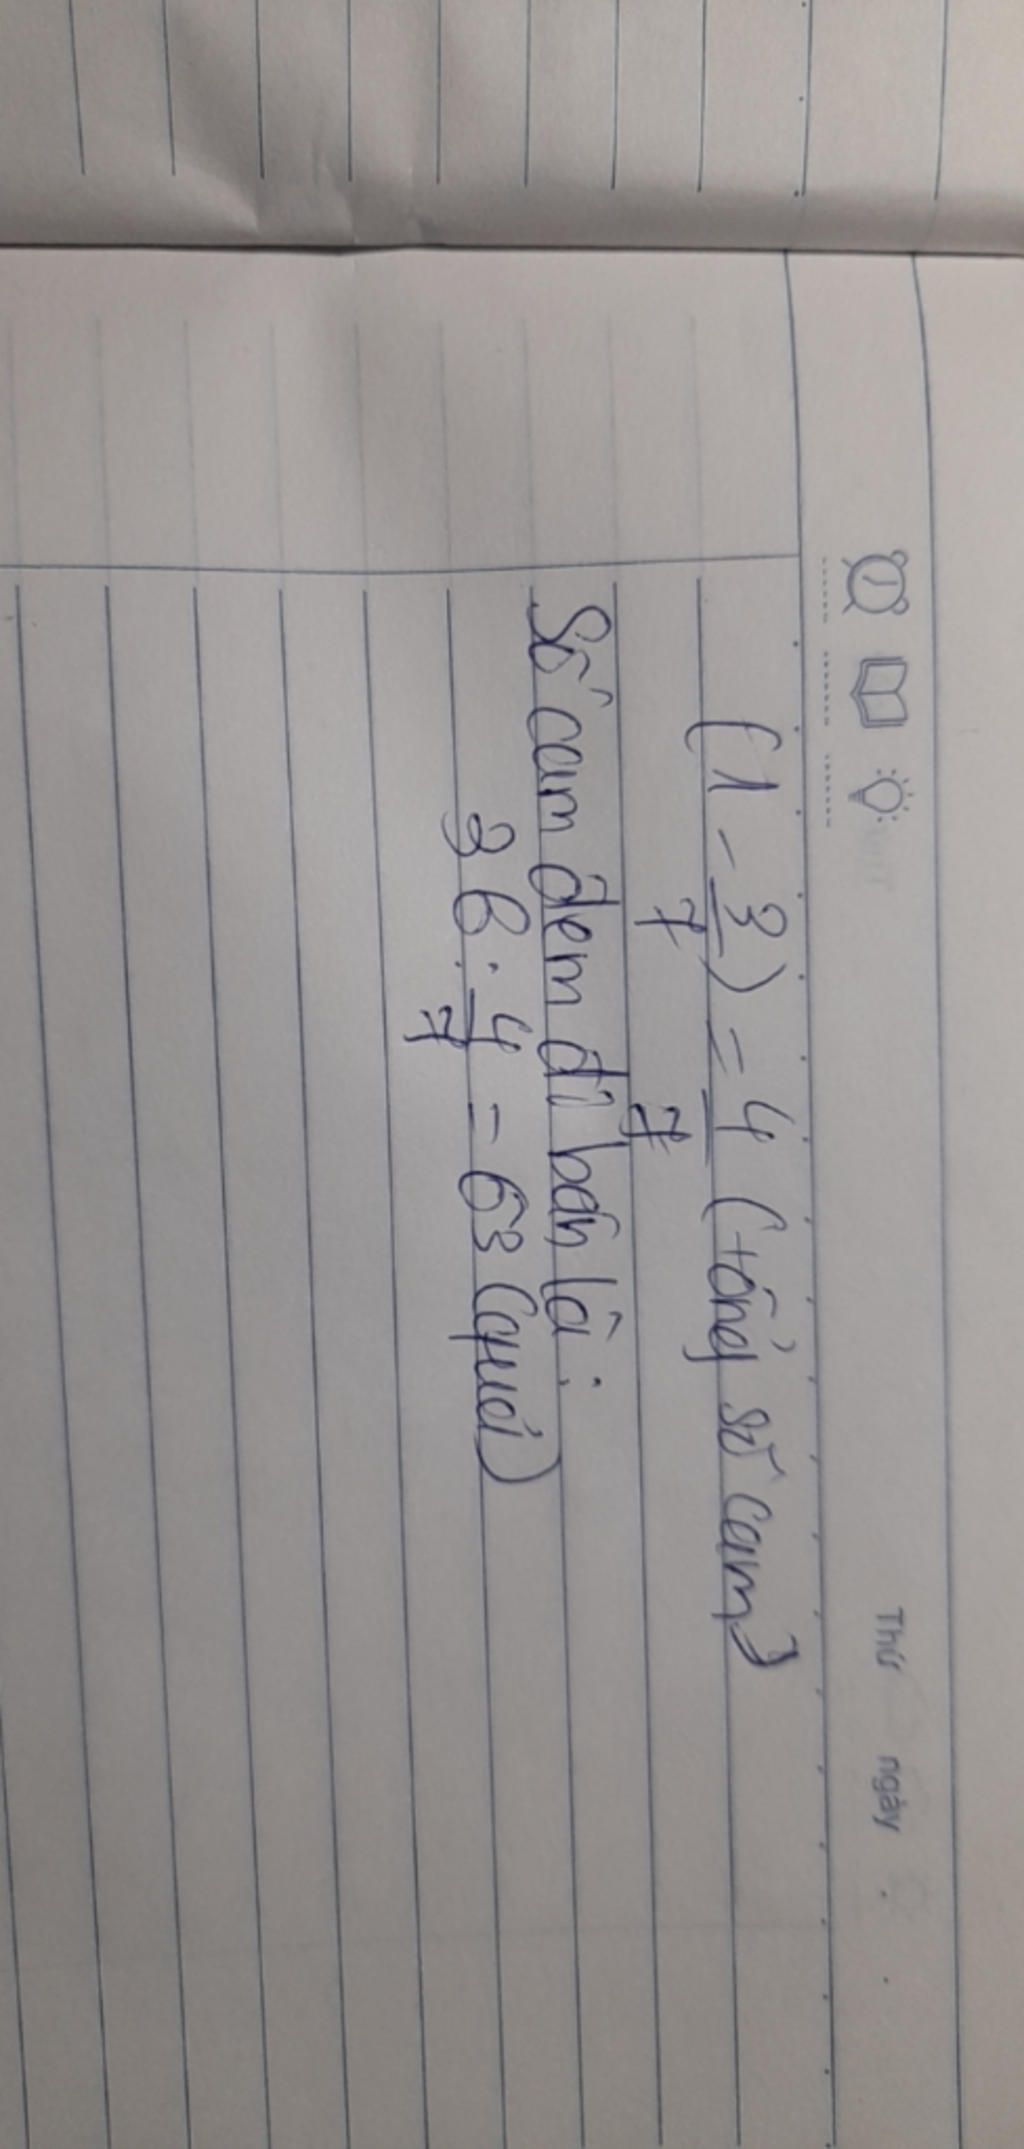 Thứ ngày
(1 - 3/7) = 4/7 (tổng số cam)
Số cam đem đi bán là:
36 : 4/7 = 63 (quả)